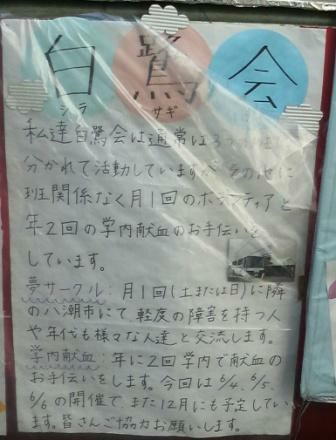 白鷺会
シラ サギ
私達白鷺会は通常は3つ
分かれて活動していますが その他に
班関係なく月1回のボランティアと
年2回の学内献血のお手伝いを
しています。
夢サークル:月1回(土または日)に隣
の八潮市にて、軽度の障害を持つ人
や年代も様々な人達と交流します。
学内献血:年に2回学内で献血の
お手伝いをします。今回は6/4、6/5、
6/6の開催で、また12月にも予定してい
ます。皆さんご協力お願いします。